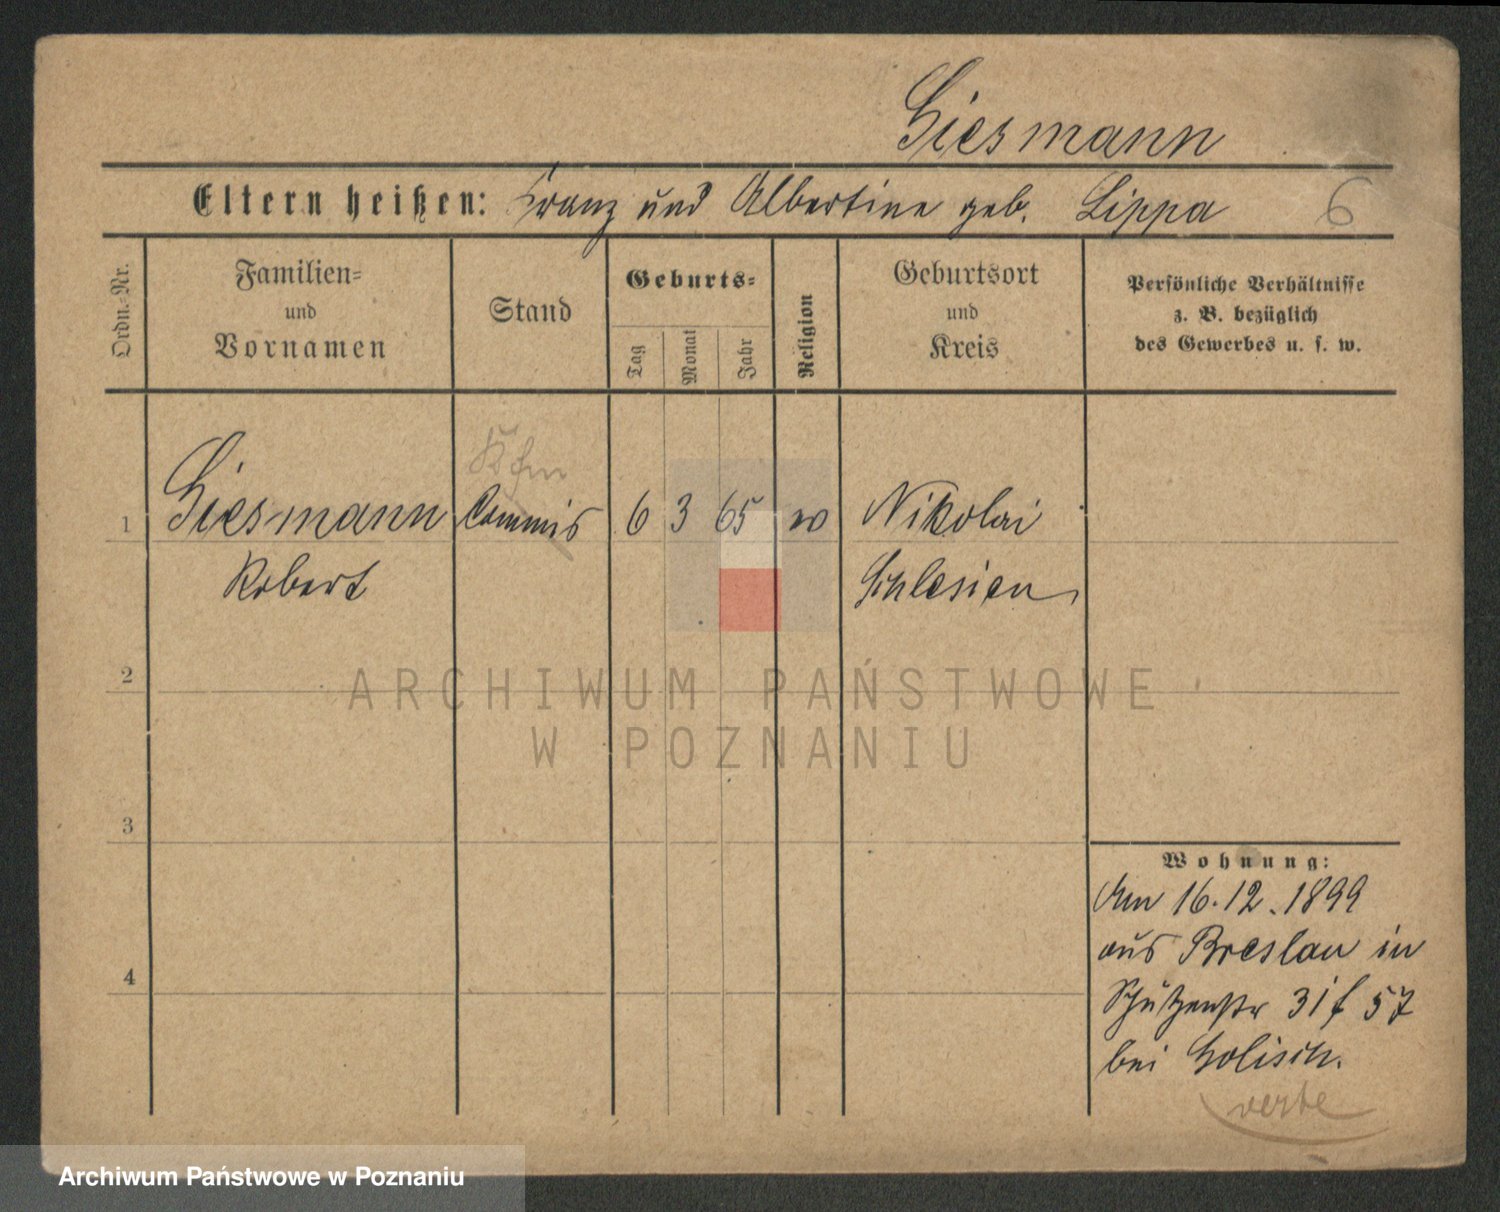 Giesmann
Eltern heißen: Franz und Albertine geb. Lippa 6
Ordn.-Nr.
Familien=
und
Vornamen
Stand
Geburts=
Tag
Monat
Jahr
Religion
Geburtsort
und
Kreis
Persönliche Verhältnisse
z. B. bezüglich
des Gewerbes u. s. w.
Kfm
1 Giesmann Commis 6 3 65 Nikolai
Robert Schlesien
2
3
4
Wohnung:
Am 16.12.1899
aus Breslau in
Schützenstr 31 f 57
bei Golisch.
ARCHIWUM PAŃSTWOWE
W POZNANIU
Archiwum Państwowe w Poznaniu